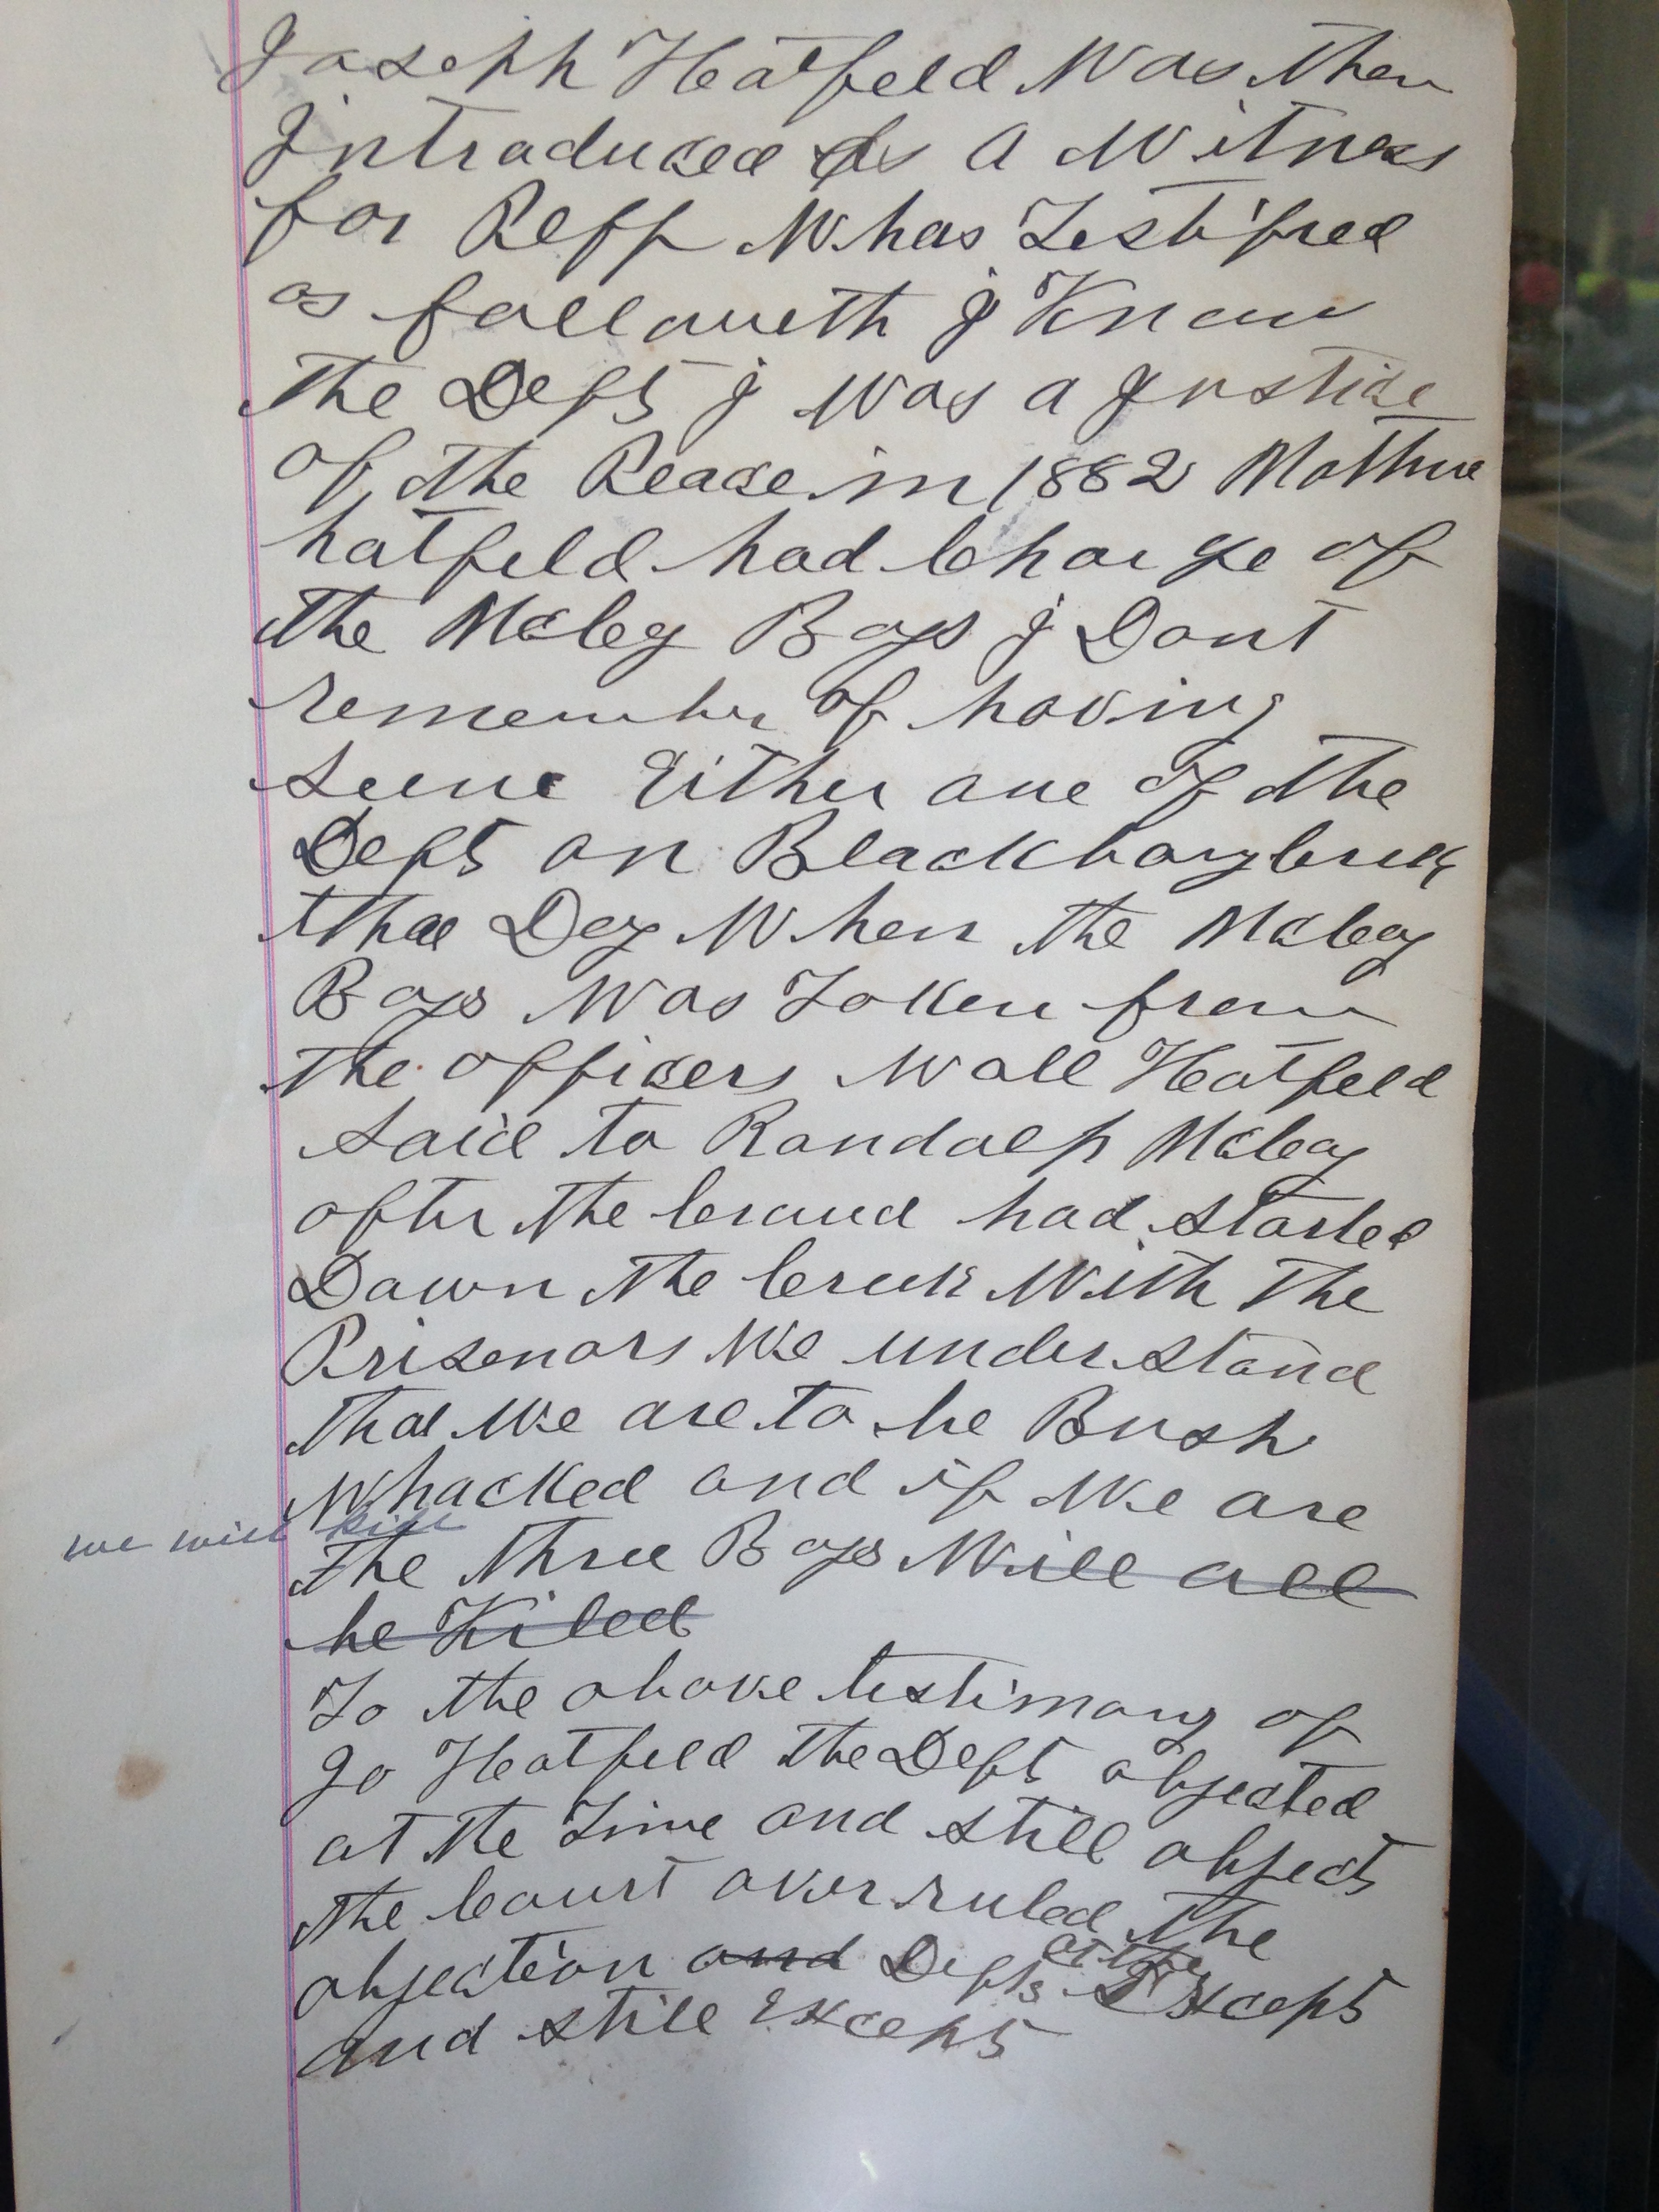 Joseph Hatfeld Was then
Introduced as a Witness
for Plff Whos Testified
as followeth I Know
the Defts I was a Justice
of the Peace in 1882 Mathue
hatfeld had Charge of
the McCoy Boys I Dont
remember of having
seene Either one of the
Defts on Blackbary Creek
the Day When the McCoy
Boys Was Token from
the officers Wall Hatfeld
said to Randolp McCoy
after the Croud had started
Down the Creek With the
Prisenors We understand
that We are to be Bush
Whacked and if We are
we will kill
the three Boys Will all
be Killed
To the above testimony of
Jo Hatfeld the Defts objected
at the Time and still objects
the Court over ruled the
at the
objection and Defts Excepts
and still Excepts